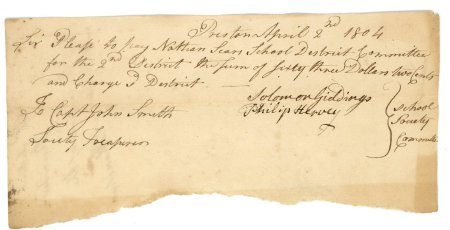 Preston April 2nd 1804
Sir Please to pay Nathan Sears School District Committee
for the 2nd District the sum of sixty three Dollars two Cents
and Charge sd District
Solomon Giddings
Philip Hervey
School
Society
Committee
To Capt John Smith
Society Treasurer